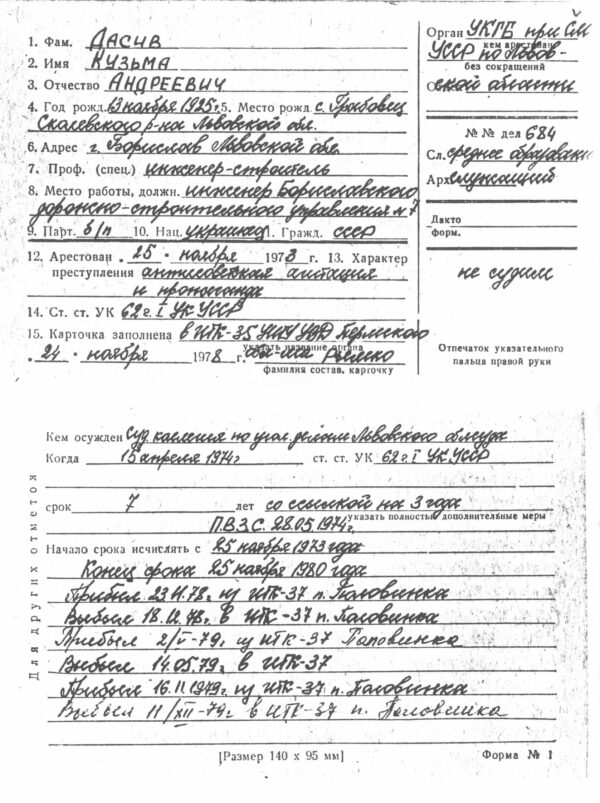 1. Фам. ДАСИВ
2. Имя КУЗЬМА
3. Отчество АНДРЕЕВИЧ
4. Год рожд. 13 ноября 1925 г. 5. Место рожд. с. Грабовец
Сколевского р-на Львовской обл.
6. Адрес г. Борислав Львовской обл.
7. Проф. (спец.) инженер-строитель
8. Место работы, должн. инженер Бориславского
дорожно-строительного управления № 7
9. Парт. б/п 10. Нац. украинец 11. Гражд. СССР
12. Арестован „25“ ноября 1973 г. 13. Характер
преступления антисоветская агитация
и пропаганда
14. Ст. ст. УК 62 ч. I УК УССР
15. Карточка заполнена в ИТК-35 УИТУ УВД Пермского
указать название органа
„24“ ноября 1978 г.
фамилия состав. карточку
Орган УКГБ при СМ
кем арестован
УССР по Львов-
без сокращений
ской области
№ № дел 684
Сл. среднее образование
Арх. служащий
Дакто
форм.
не судим
Отпечаток указательного
пальца правой руки
Для других отметок
Кем осужден Суд. коллегия по угол. делам Львовского облсуда
Когда 15 апреля 1974 г. ст. ст. УК 62 ч. I УК УССР
срок 7 лет со ссылкой на 3 года
указать полностью дополнительные меры
П.В.З.С. 28.05.1974 г.
Начало срока исчислять с 25 ноября 1973 года
Конец срока 25 ноября 1980 года
Прибыл 23.11.78. из ИТК-37 п. Половинка
Выбыл 18.12.78. в ИТК-37 п. Половинка
Прибыл 2/V-79. из ИТК-37 Половинка
Выбыл 14.05.79. в ИТК-37
Прибыл 16.11.1979 г. из ИТК-37 п. Половинка
Выбыл 11/XII-79 г. в ИТК-37 п. Половинка
[Размер 140 х 95 мм] Форма № 1